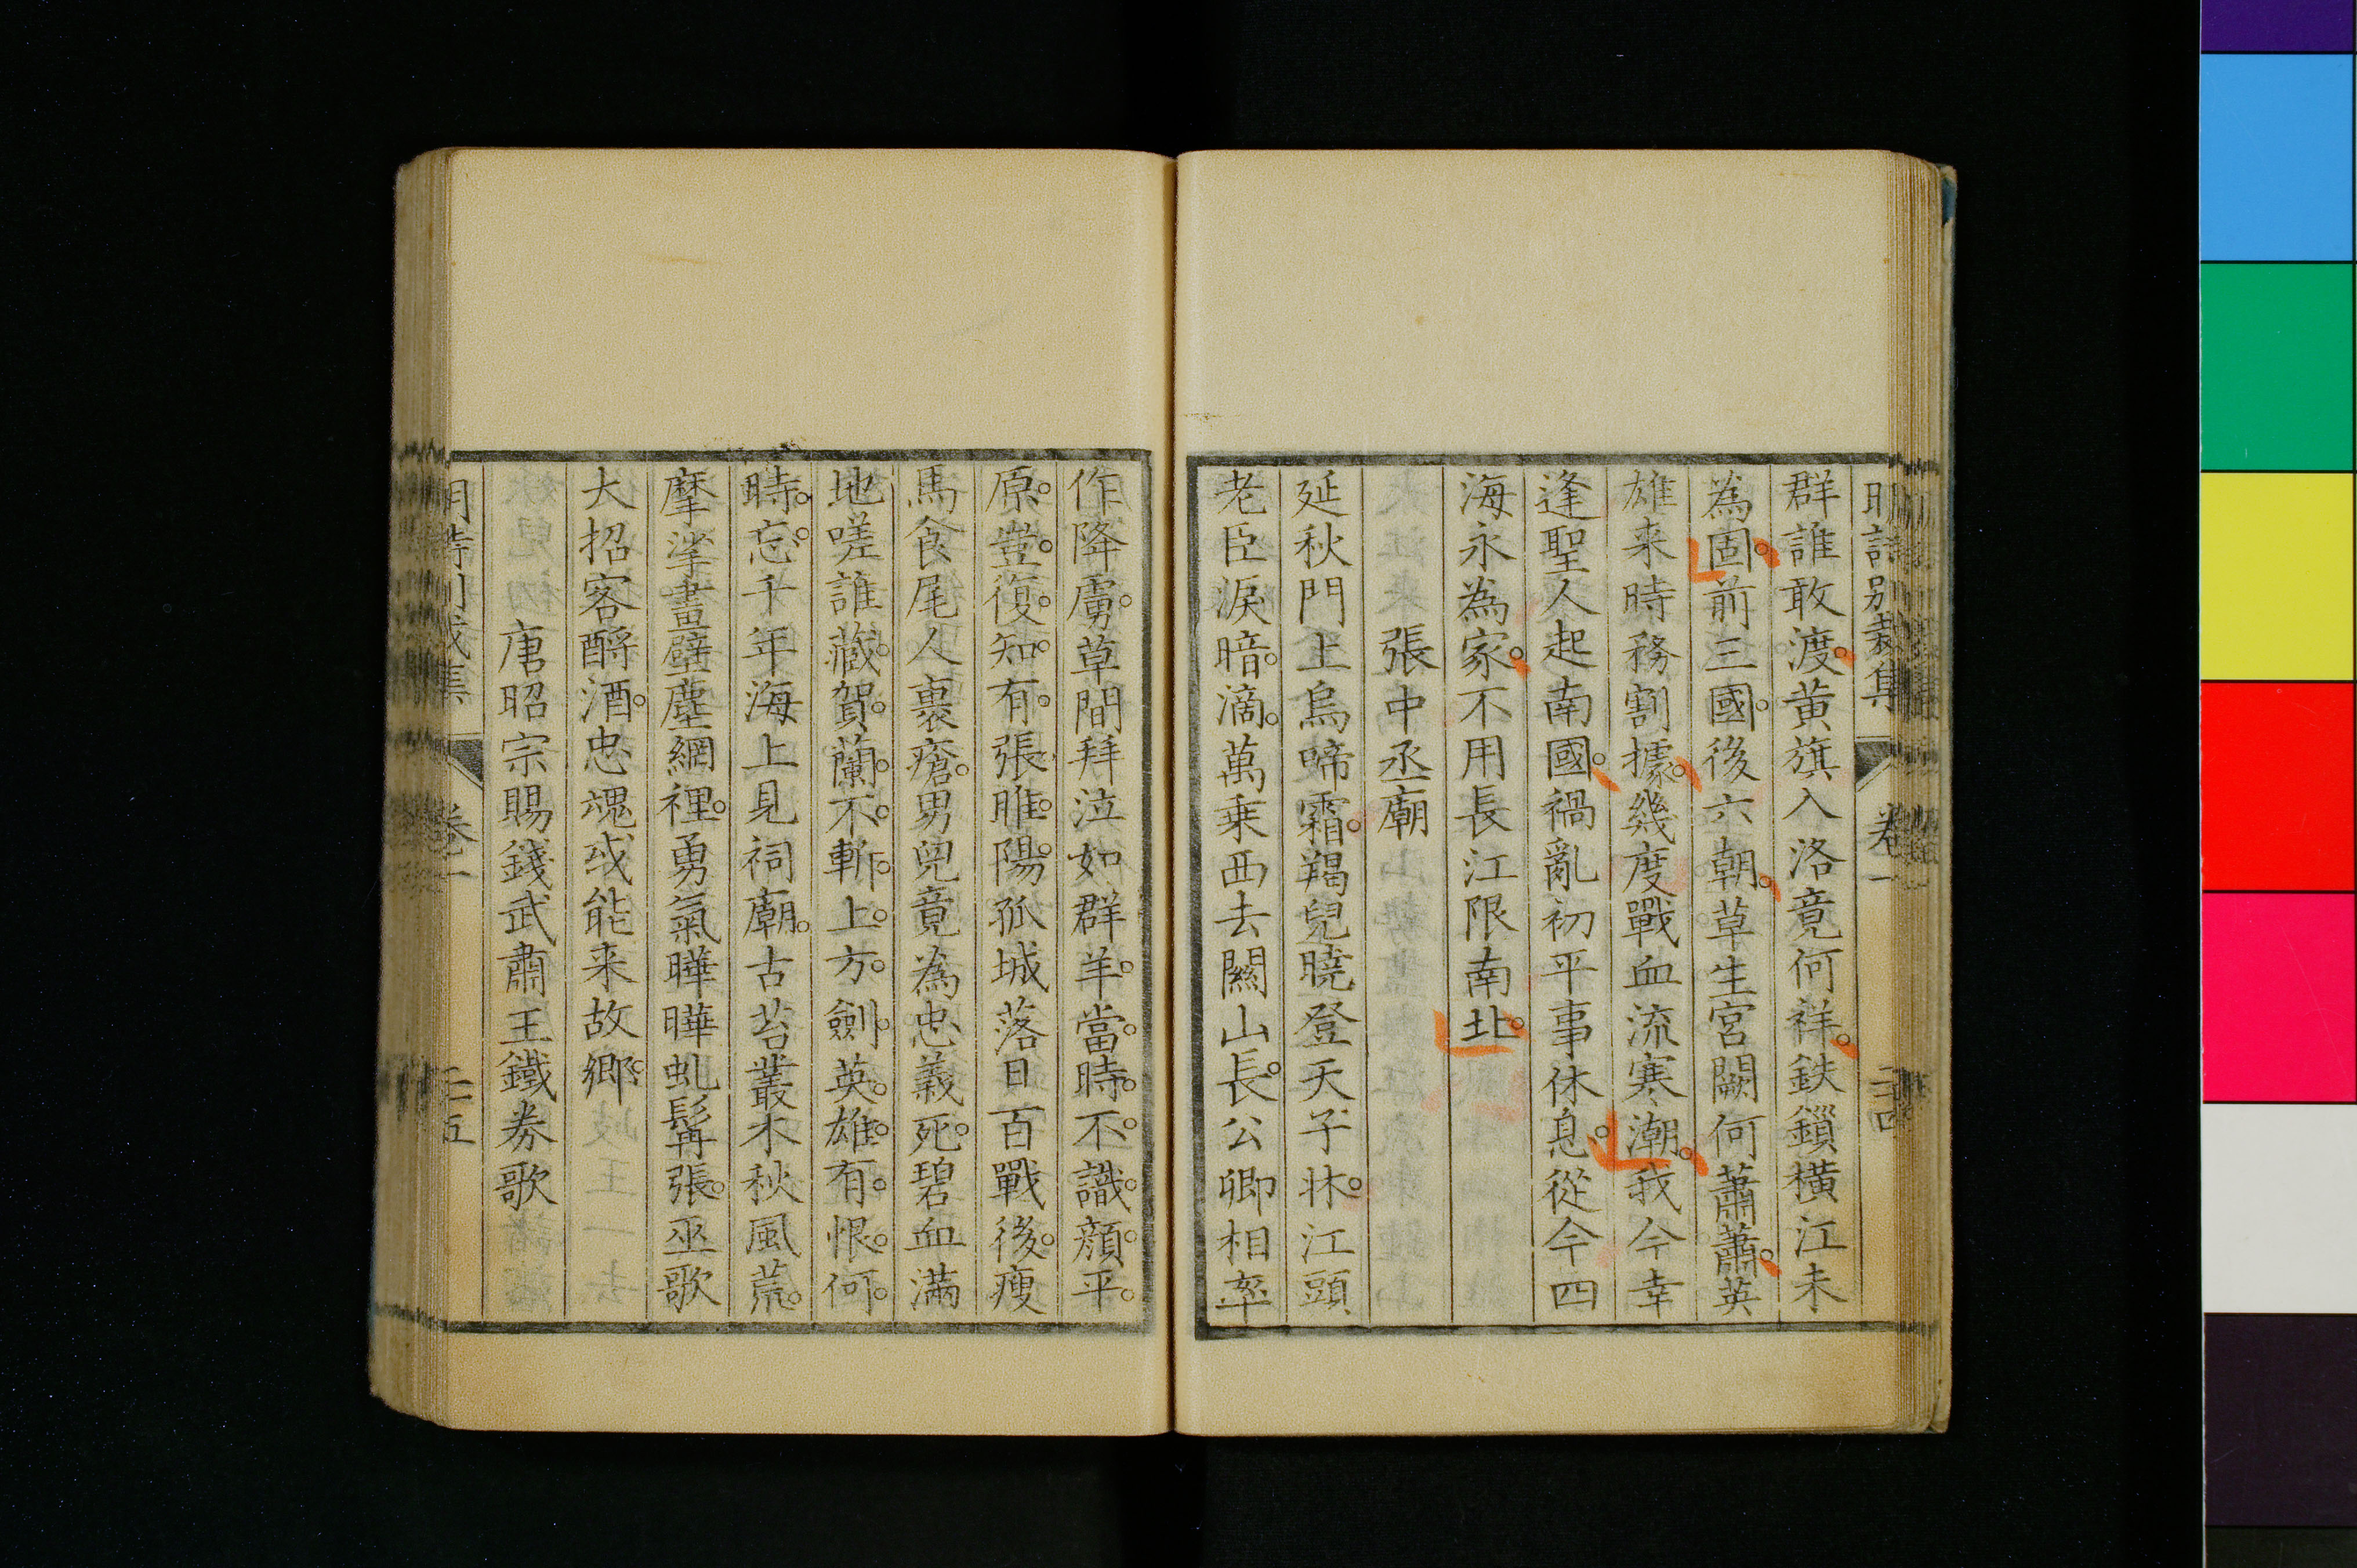 明詩別裁集 卷一 二十四
群誰敢渡。黄旗入洛竟何祥。鉄鎖橫江未
為固。前三國。後六朝。草生宮闕何蕭蕭。英
雄来時務割據。幾度戰血流寒潮。我今幸
逢聖人起南國。禍亂初平事休息。從今四
海永為家。不用長江限南北。
張中丞廟
延秋門上烏啼霜。羯兒曉登天子牀。江頭
老臣淚暗滴。萬乗西去關山長。公卿相率
作降虜。草間拜泣如群羊。當時不識顔平
原。豈復知有張睢陽。孤城落日百戰後。瘦
馬食尾人裹瘡。男兒竟為忠義死。碧血滿
地嗟誰藏。賀蘭不斬上方劍。英雄有恨何
時忘。千年海上見祠廟。古苔叢木秋風荒。
摩挲畫壁塵網裡。勇氣曄曄虬髯張。巫歌
大招客酹酒。忠魂或能来故鄉。
唐昭宗賜錢武肅王鐵券歌
明詩別裁集 卷一 二十五